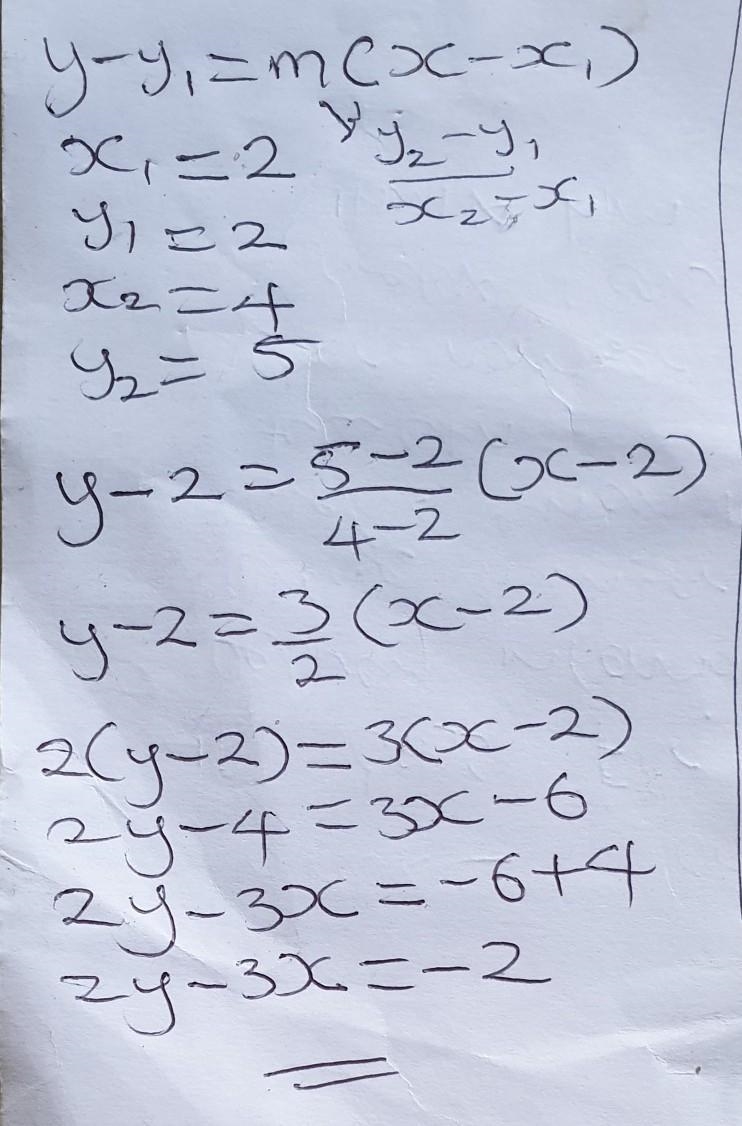 y-y₁=m(x-x₁)
x₁=2
y₂-y₁
x₂-x₁
y₁=2
x₂=4
y₂=5
y-2=5-2/4-2(x-2)
y-2=3/2(x-2)
2(y-2)=3(x-2)
2y-4=3x-6
2y-3x=-6+4
2y-3x=-2